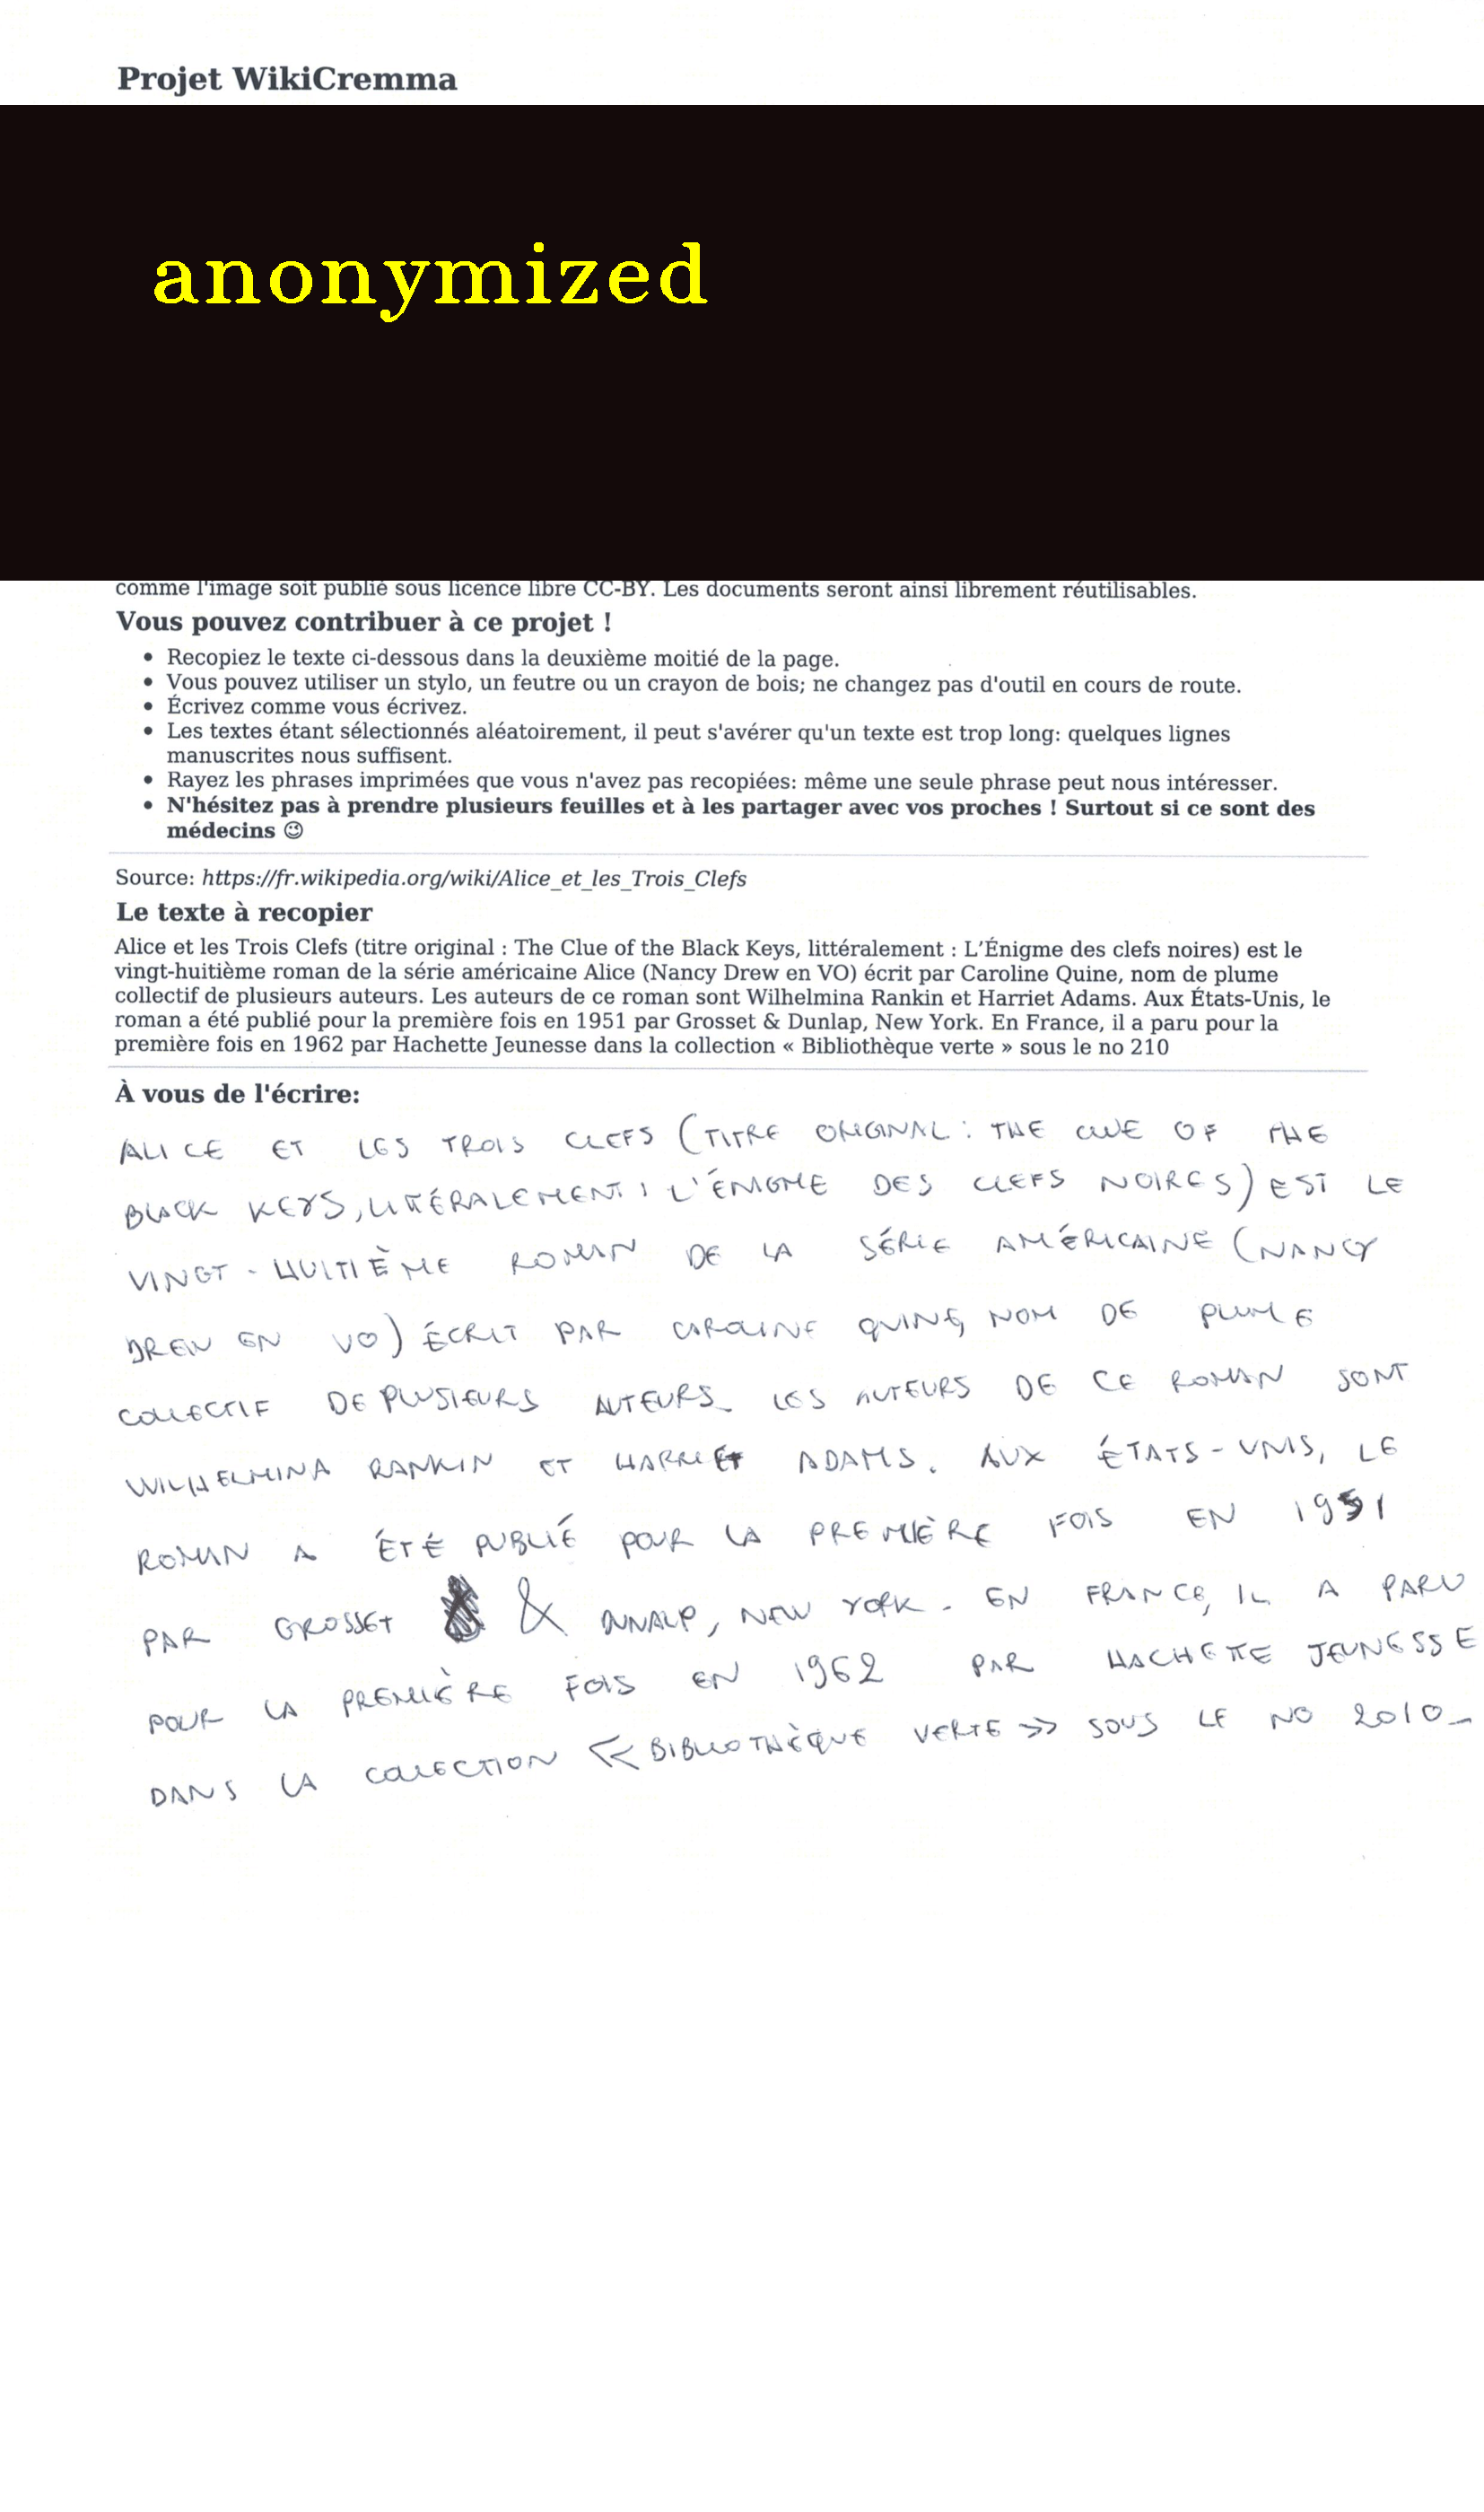 Projet WikiCremma
anonymized
comme l'image soit publié sous licence libre CC-BY. Les documents seront ainsi librement réutilisables.
Vous pouvez contribuer à ce projet !
• Recopiez le texte ci-dessous dans la deuxième moitié de la page.
• Vous pouvez utiliser un stylo, un feutre ou un crayon de bois; ne changez pas d'outil en cours de route.
• Écrivez comme vous écrivez.
• Les textes étant sélectionnés aléatoirement, il peut s'avérer qu'un texte est trop long: quelques lignes
manuscrites nous suffisent.
• Rayez les phrases imprimées que vous n'avez pas recopiées: même une seule phrase peut nous intéresser.
• N'hésitez pas à prendre plusieurs feuilles et à les partager avec vos proches ! Surtout si ce sont des
médecins 😉
Source: https://fr.wikipedia.org/wiki/Alice_et_les_Trois_Clefs
Le texte à recopier
Alice et les Trois Clefs (titre original : The Clue of the Black Keys, littéralement : L’Énigme des clefs noires) est le
vingt-huitième roman de la série américaine Alice (Nancy Drew en VO) écrit par Caroline Quine, nom de plume
collectif de plusieurs auteurs. Les auteurs de ce roman sont Wilhelmina Rankin et Harriet Adams. Aux États-Unis, le
roman a été publié pour la première fois en 1951 par Grosset & Dunlap, New York. En France, il a paru pour la
première fois en 1962 par Hachette Jeunesse dans la collection « Bibliothèque verte » sous le no 210
À vous de l'écrire:
ALICE ET LES TROIS CLEFS (TITRE ORIGINAL : THE CLUE OF THE
BLACK KEYS, LITTÉRALEMENT : L'ÉNIGME DES CLEFS NOIRES) EST LE
VINGT-HUITIÈME ROMAN DE LA SÉRIE AMÉRICAINE (NANCY
DREW EN VO) ÉCRIT PAR CAROLINE QUINE, NOM DE PLUME
COLLECTIF DE PLUSIEURS AUTEURS. LES AUTEURS DE CE ROMAN SONT
WILHELMINA RANKIN ET HARRIET ADAMS. AUX ÉTATS-UNIS, LE
ROMAN A ÉTÉ PUBLIÉ POUR LA PREMIÈRE FOIS EN 1951
PAR GROSSET & DUNALP, NEW YORK. EN FRANCE, IL A PARU
POUR LA PREMIÈRE FOIS EN 1962 PAR HACHETTE JEUNESSE
DANS LA COLLECTION « BIBLIOTHÈQUE VERTE » SOUS LE NO 2010.